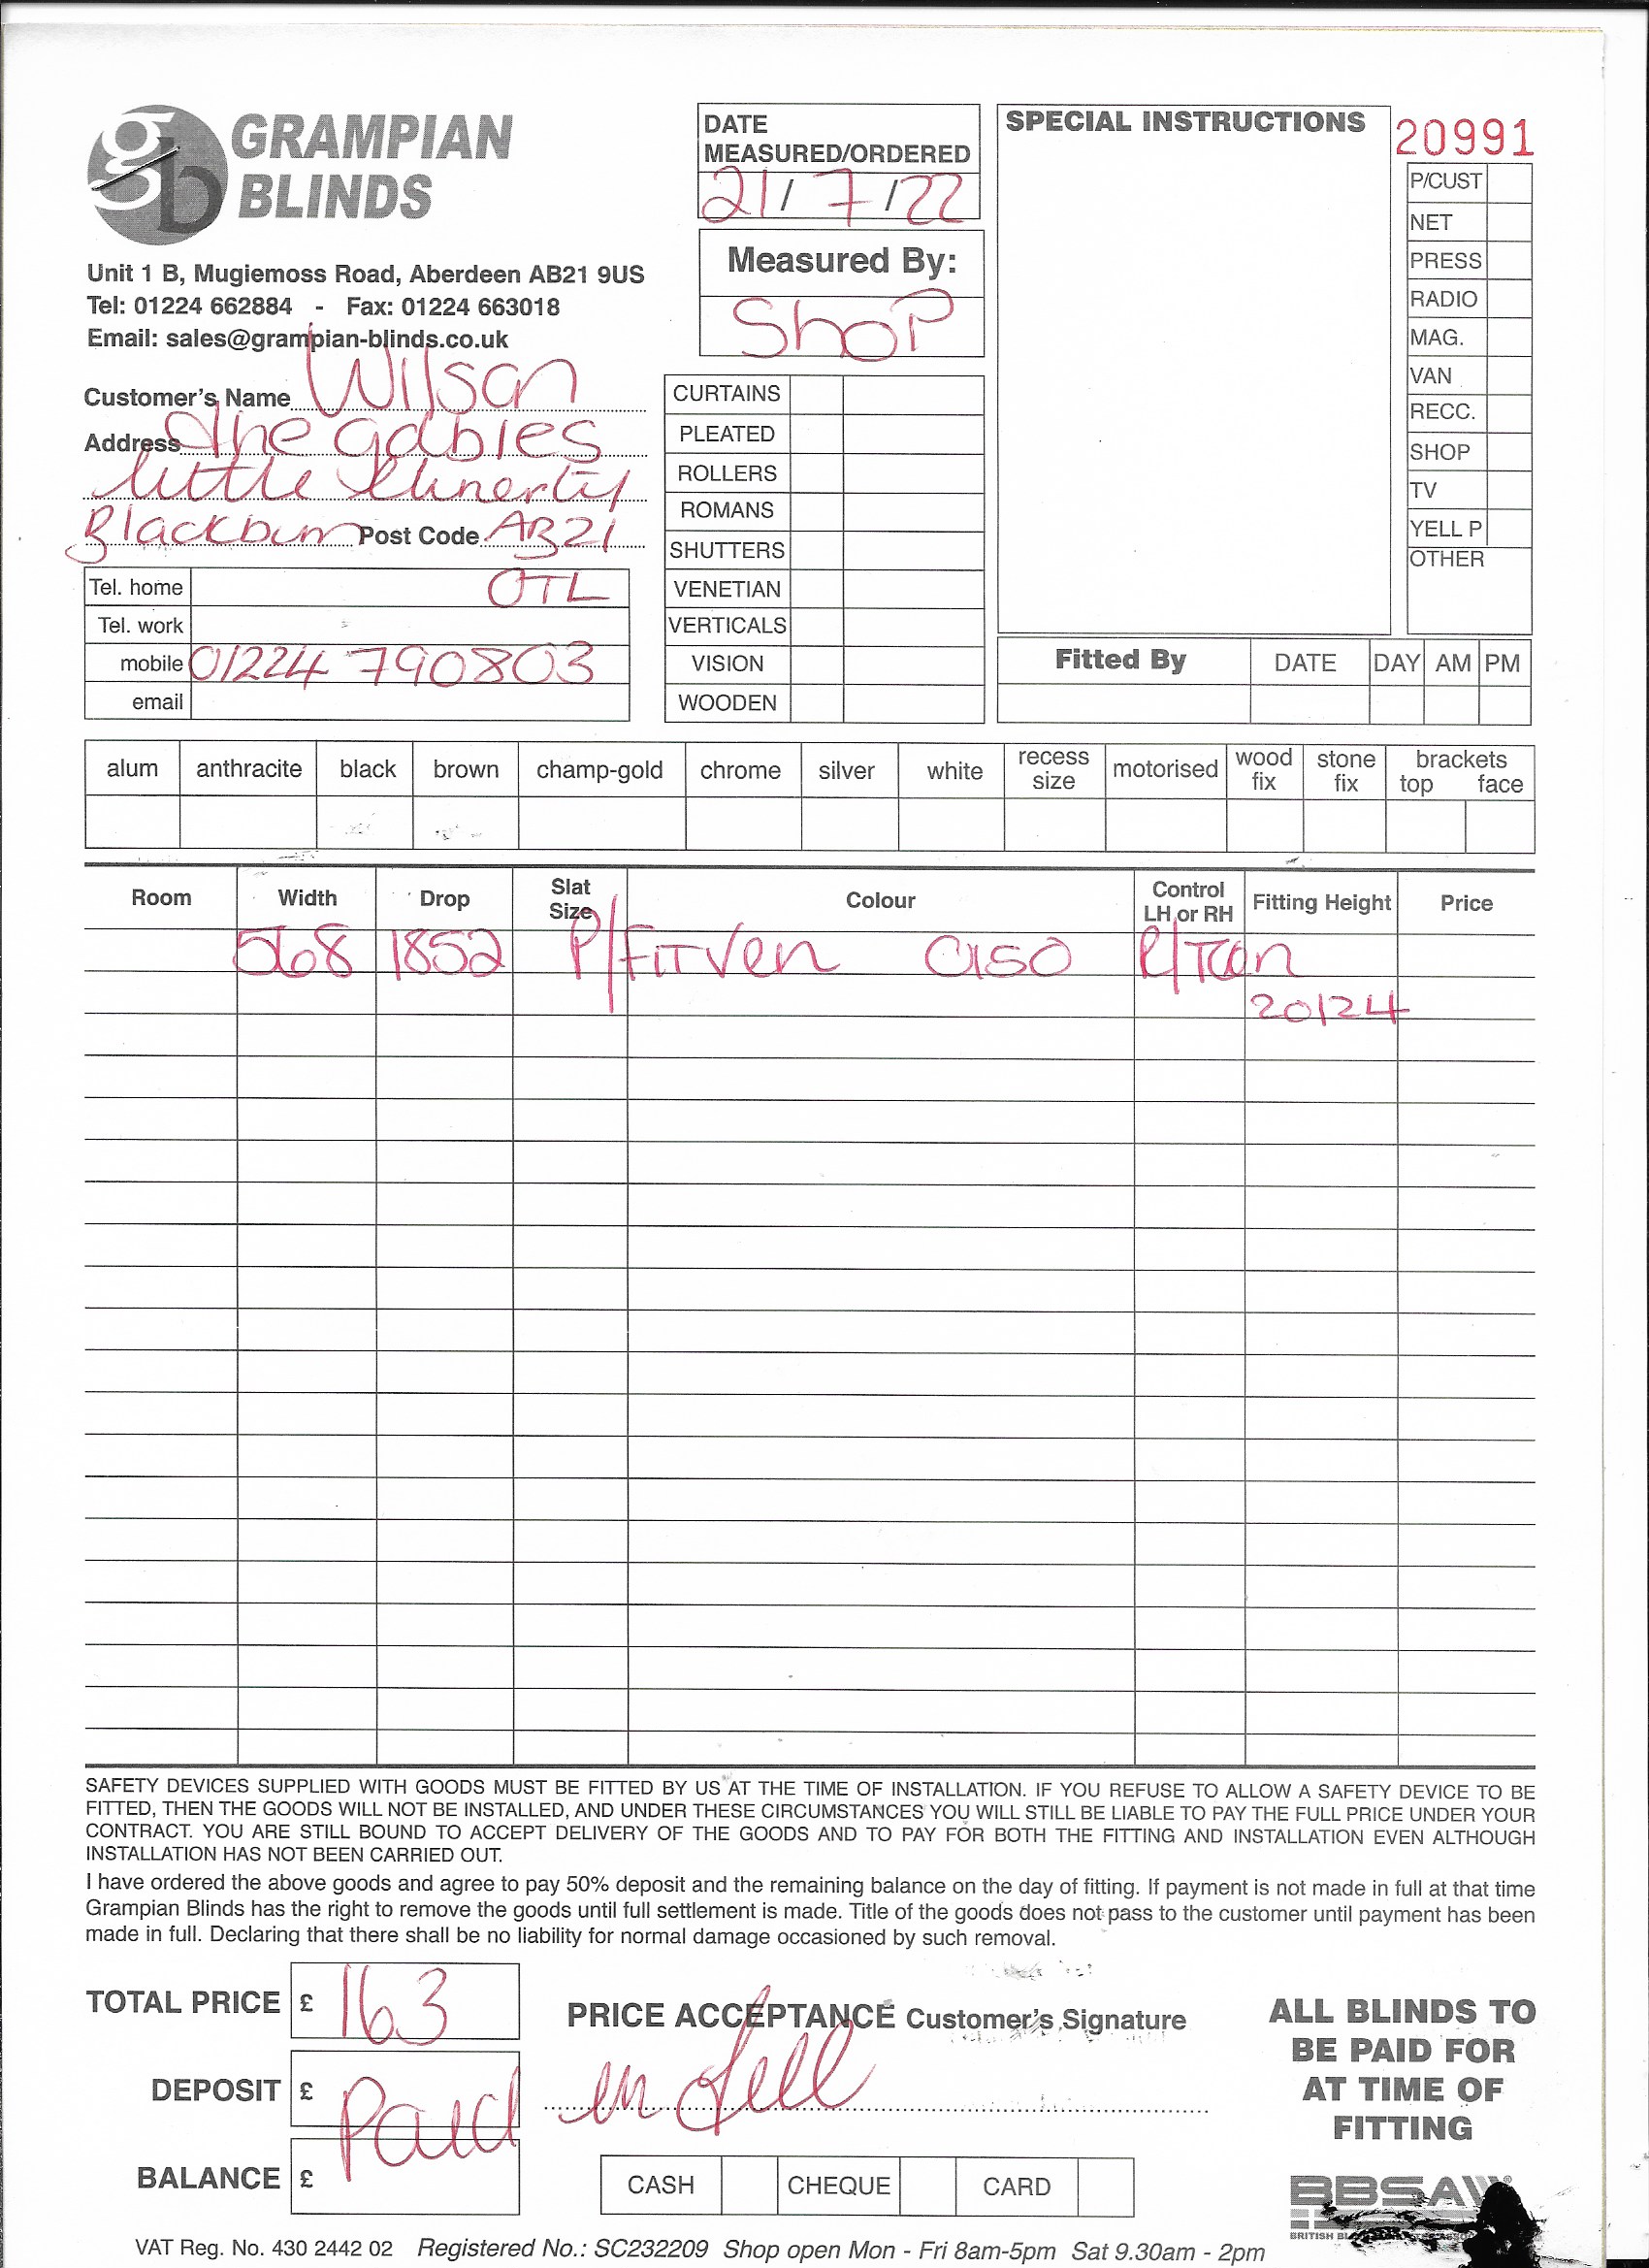 GRAMPIAN
BLINDS
Unit 1 B, Mugiemoss Road, Aberdeen AB21 9US
Tel: 01224 662884 - Fax: 01224 663018
Email: sales@grampian-blinds.co.uk
Customer's Name Wilson
Address The Gables
Little
Blackburn Post Code AB21
Tel. home 0TL
Tel. work
mobile 01224 790803
email
DATE
MEASURED/ORDERED
21/7/22
Measured By:
Shop
CURTAINS
PLEATED
ROLLERS
ROMANS
SHUTTERS
VENETIAN
VERTICALS
VISION
WOODEN
SPECIAL INSTRUCTIONS
20991
P/CUST
NET
PRESS
RADIO
MAG.
VAN
RECC.
SHOP
TV
YELL P
OTHER
Fitted By DATE DAY AM PM
alum anthracite black brown champ-gold chrome silver white recess size motorised wood fix stone fix brackets top face
Room Width Drop Slat Size Colour Control LH or RH Fitting Height Price
568 1852 P/Fit Ven
20124
SAFETY DEVICES SUPPLIED WITH GOODS MUST BE FITTED BY US AT THE TIME OF INSTALLATION. IF YOU REFUSE TO ALLOW A SAFETY DEVICE TO BE
FITTED, THEN THE GOODS WILL NOT BE INSTALLED, AND UNDER THESE CIRCUMSTANCES YOU WILL STILL BE LIABLE TO PAY THE FULL PRICE UNDER YOUR
CONTRACT. YOU ARE STILL BOUND TO ACCEPT DELIVERY OF THE GOODS AND TO PAY FOR BOTH THE FITTING AND INSTALLATION EVEN ALTHOUGH
INSTALLATION HAS NOT BEEN CARRIED OUT.
I have ordered the above goods and agree to pay 50% deposit and the remaining balance on the day of fitting. If payment is not made in full at that time
Grampian Blinds has the right to remove the goods until full settlement is made. Title of the goods does not pass to the customer until payment has been
made in full. Declaring that there shall be no liability for normal damage occasioned by such removal.
TOTAL PRICE £ 163
PRICE ACCEPTANCE Customer's Signature
DEPOSIT £ Paid in full
BALANCE £
CASH CHEQUE CARD
ALL BLINDS TO
BE PAID FOR
AT TIME OF
FITTING
BBSA
VAT Reg. No. 430 2442 02 Registered No.: SC232209 Shop open Mon - Fri 8am-5pm Sat 9.30am - 2pm